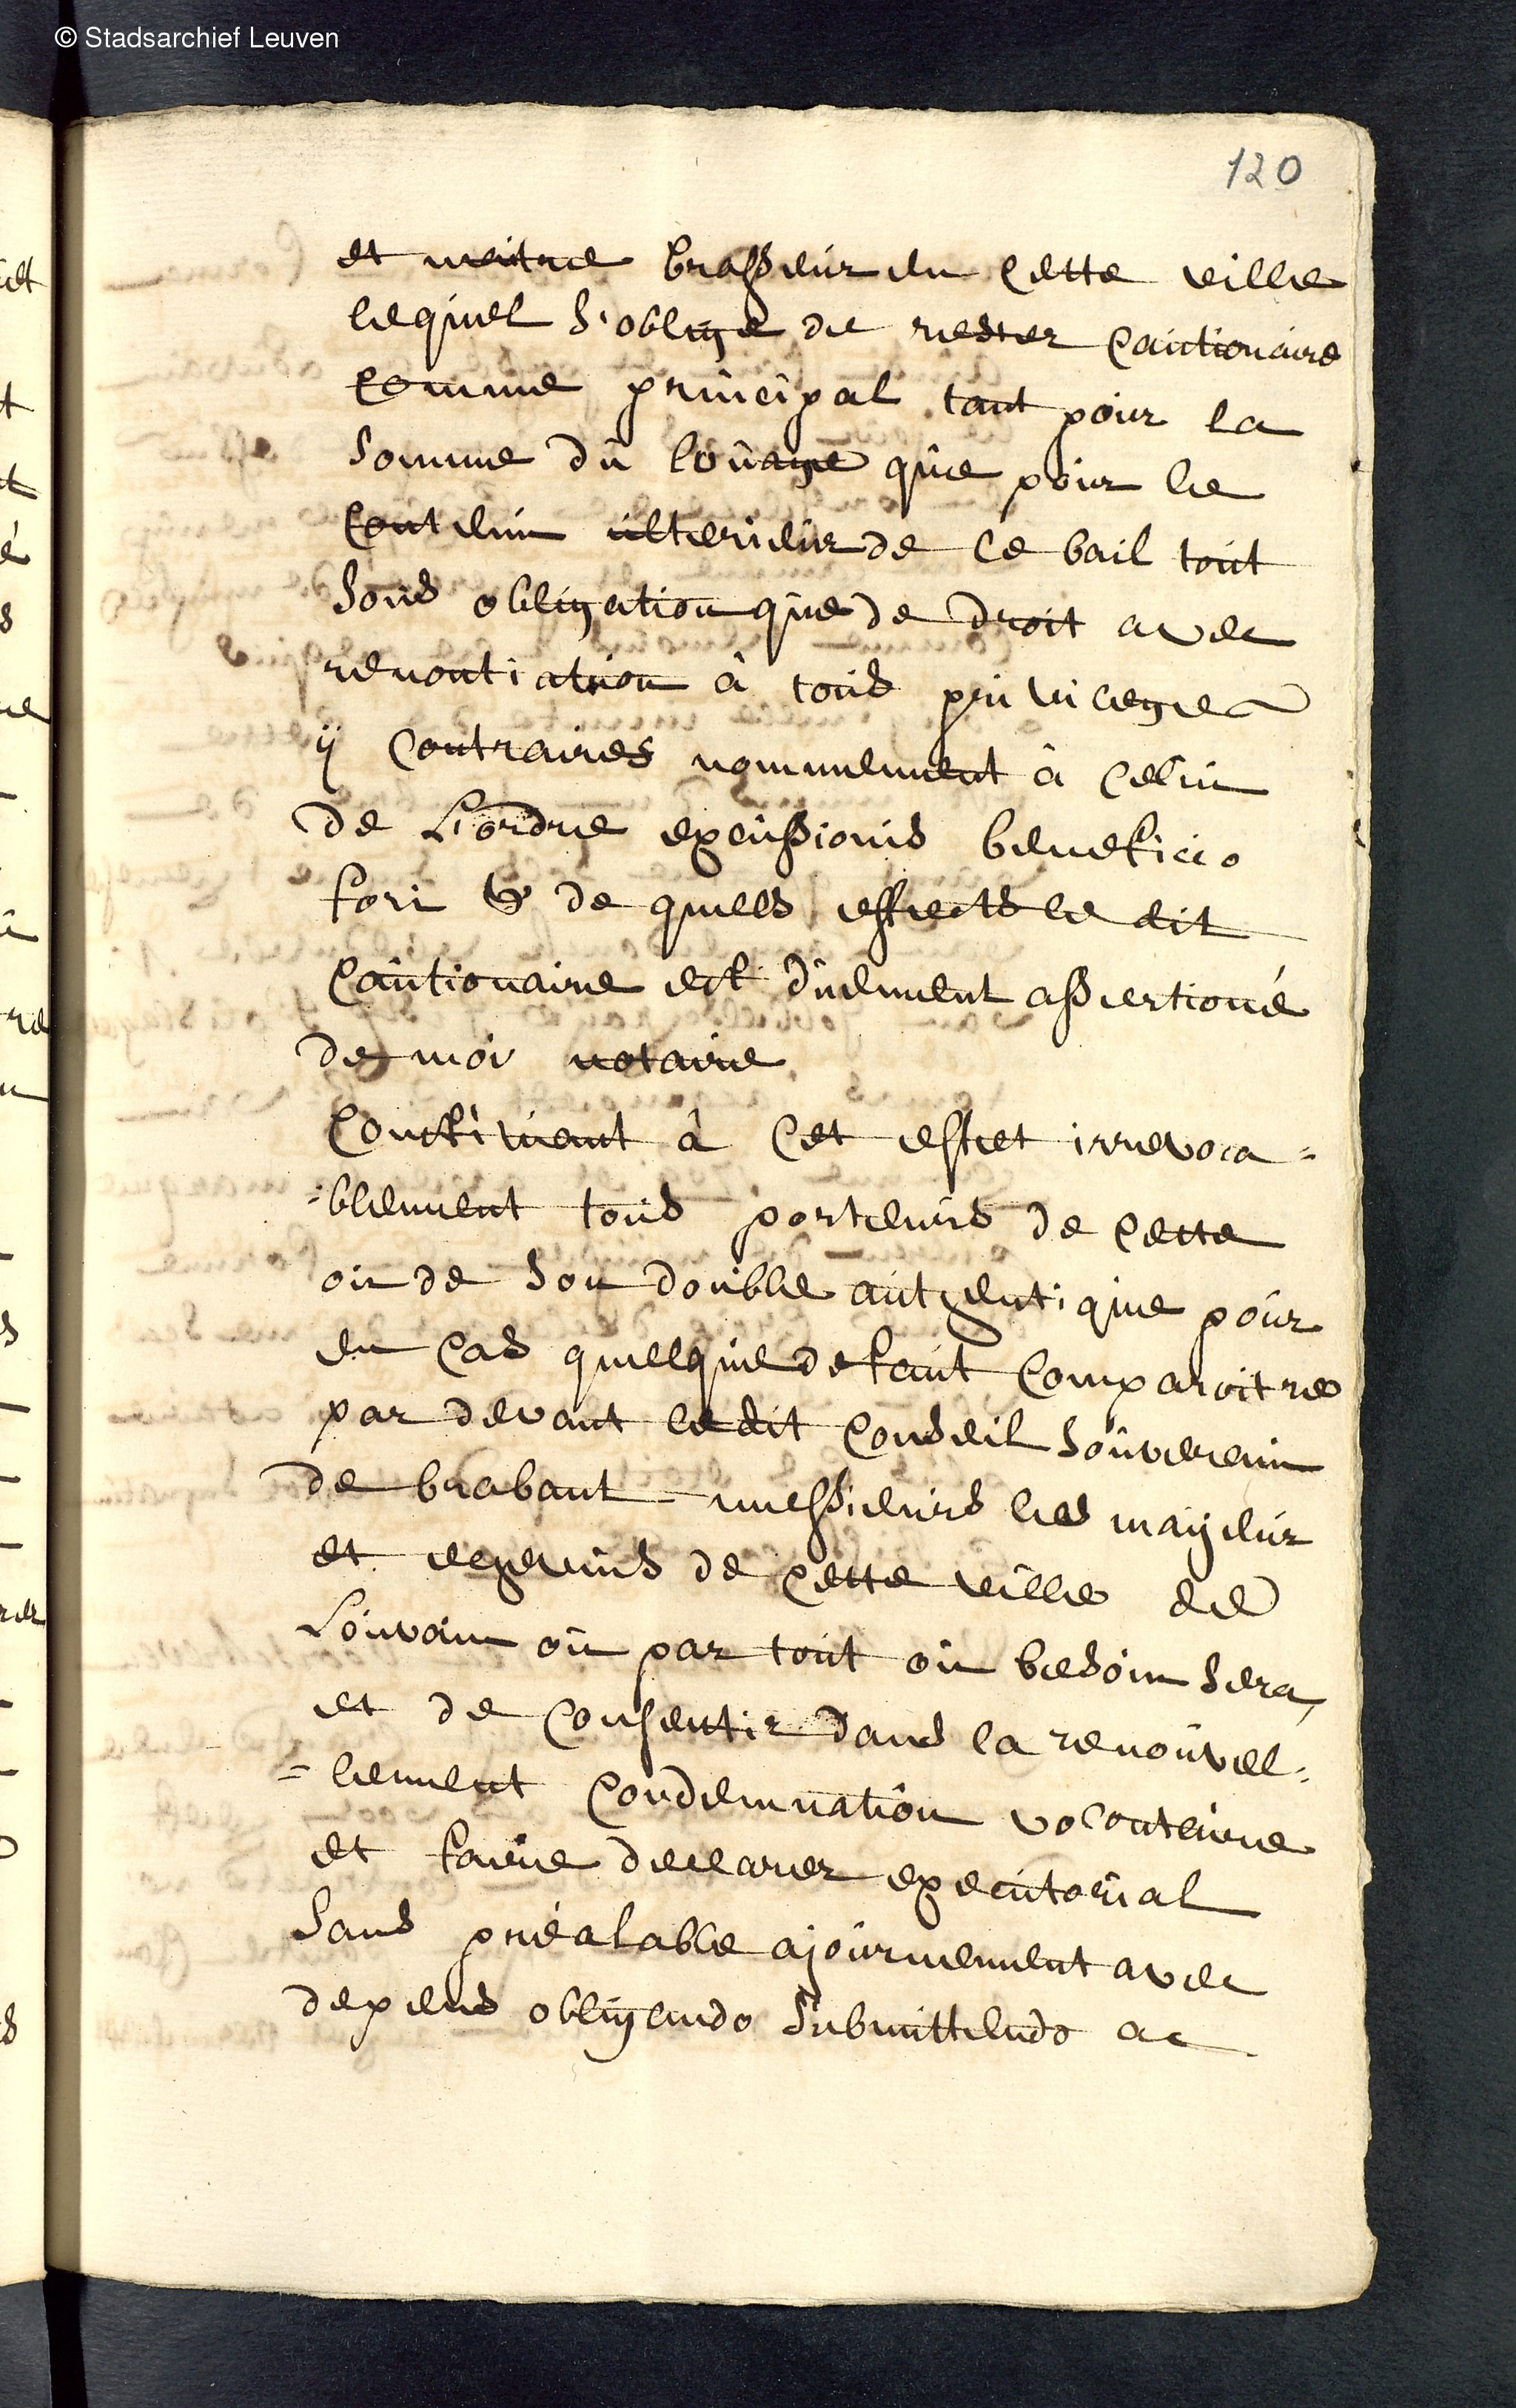 © Stadsarchief Leuven
120
et maitre brasseur en cette ville
lequel s'oblige de rester cautionaire
comme principal tant pour la
somme du loûage que pour le
contenu ulterieur de ce bail tout
sous obligation que de droit avec
renontiation à tous privilege
ÿ contraires nommement à celui
de L'ordre excussionis beneficio
fori & de quels effects le dit
cautionaire est duement assertioné
de moi notaire
Constituent à cet effet irrevoca=
=blement tous porteurs de cette
ou de son double autgentique pour
en cas quelque defaut comparoitre
par devant le dit conseil souverain
de brabant messieurs les maÿeur
et eegevins de cette ville de
Louvain ou par tout ou besoin sera,
et de consentir dans la renouvel=
=lement condemnation volontaire
et faire declarer executorial
sans préalable ajournement avec
depens obligendo submittendo ac